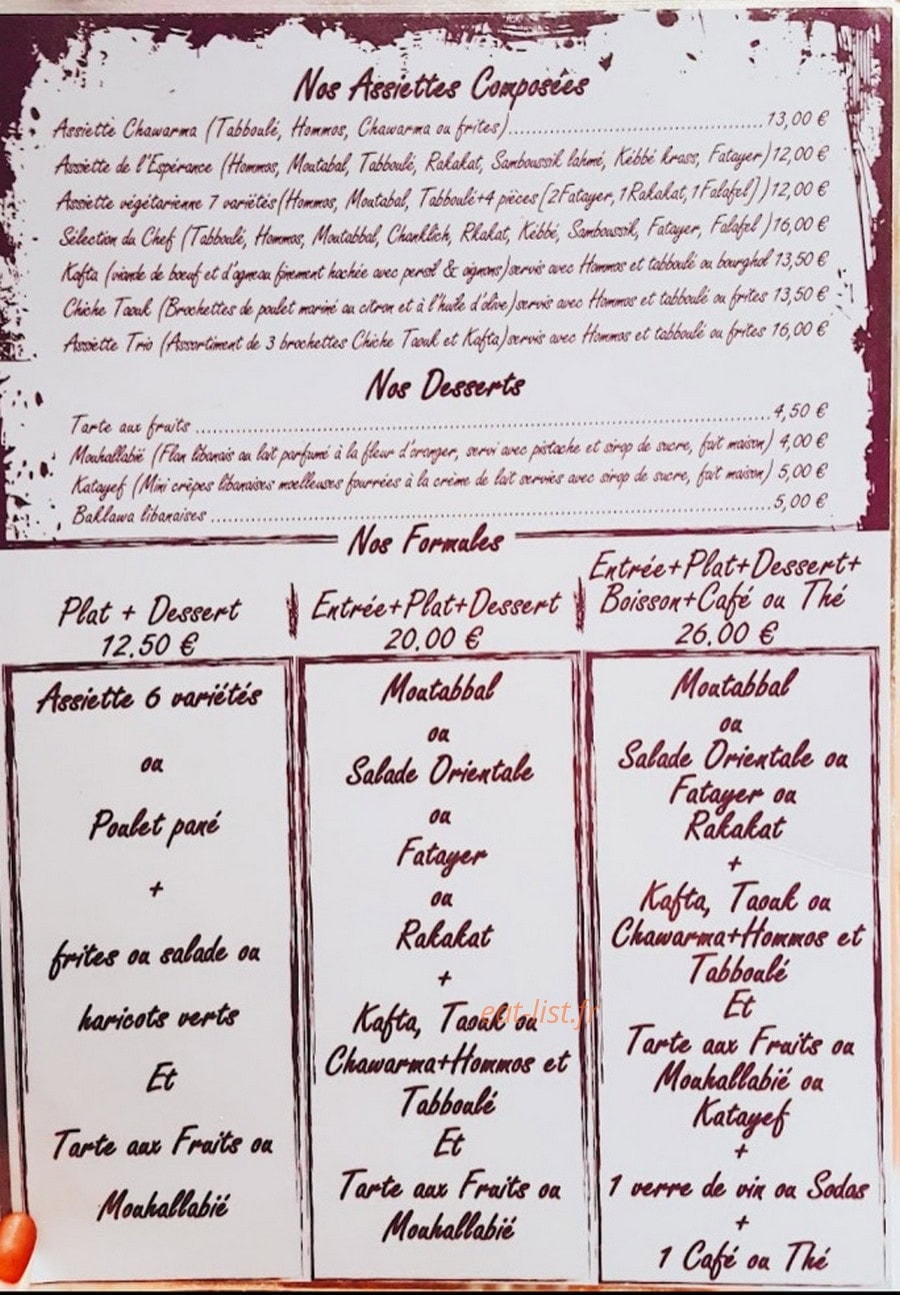 Nos Assiettes Composées
Assiette Chawarma (Tabboulé, Hommos, Chawarma ou frites)......13,00 €
Assiette de l'Espérance (Hommos, Moutabal, Tabboulé, Rakakat, Samboussik lahmé, Kébbé krass, Fatayer) 12,00 €
Assiette végétarienne 7 variétés (Hommos, Moutabal, Tabboulé+4 pièces [2Fatayer, 1Rakakat, 1Falafel] ) 12,00 €
Sélection du Chef (Tabboulé, Hommos, Moutabbal, Chanklich, Rkakat, Kébbé, Samboussik, Fatayer, Falafel ) 16,00 €
Kafta (viande de bœuf et d'agneau finement hachée avec persil & oignons)servis avec Hommos et tabboulé ou bourghol 13,50 €
Chiche Taouk (Brochettes de poulet mariné au citron et à l'huile d'olive)servis avec Hommos et tabboulé ou frites 13,50 €
Assiette Trio (Assortiment de 3 brochettes Chiche Taouk et Kafta)servis avec Hommos et tabboulé ou frites 16,00 €
Nos Desserts
Tarte aux fruits ......4,50 €
Mouhallabié (Flan libanais au lait parfumé à la fleur d'oranger, servi avec pistache et sirop de sucre, fait maison) 4,00 €
Katayef (Mini crèpes libanaises moelleuses fourrées à la crème de lait servies avec sirop de sucre, fait maison) 5,00 €
Baklawa libanaises ......5,00 €
Nos Formules
Plat + Dessert
12.50 €
Assiette 6 variétés
ou
Poulet pané
+
frites ou salade ou
haricots verts
Et
Tarte aux Fruits ou
Mouhallabié
Entrée+Plat+Dessert
20.00 €
Moutabbal
ou
Salade Orientale
ou
Fatayer
ou
Rakakat
+
Kafta, Taouk ou
Chawarma+Hommos et
Tabboulé
Et
Tarte aux Fruits ou
Mouhallabié
Entrée+Plat+Dessert+
Boisson+Café ou Thé
26.00 €
Moutabbal
ou
Salade Orientale ou
Fatayer ou
Rakakat
+
Kafta, Taouk ou
Chawarma+Hommos et
Tabboulé
Et
Tarte aux Fruits ou
Mouhallabié ou
Katayef
+
1 verre de vin ou Sodas
+
1 Café ou Thé
eat-list.fr